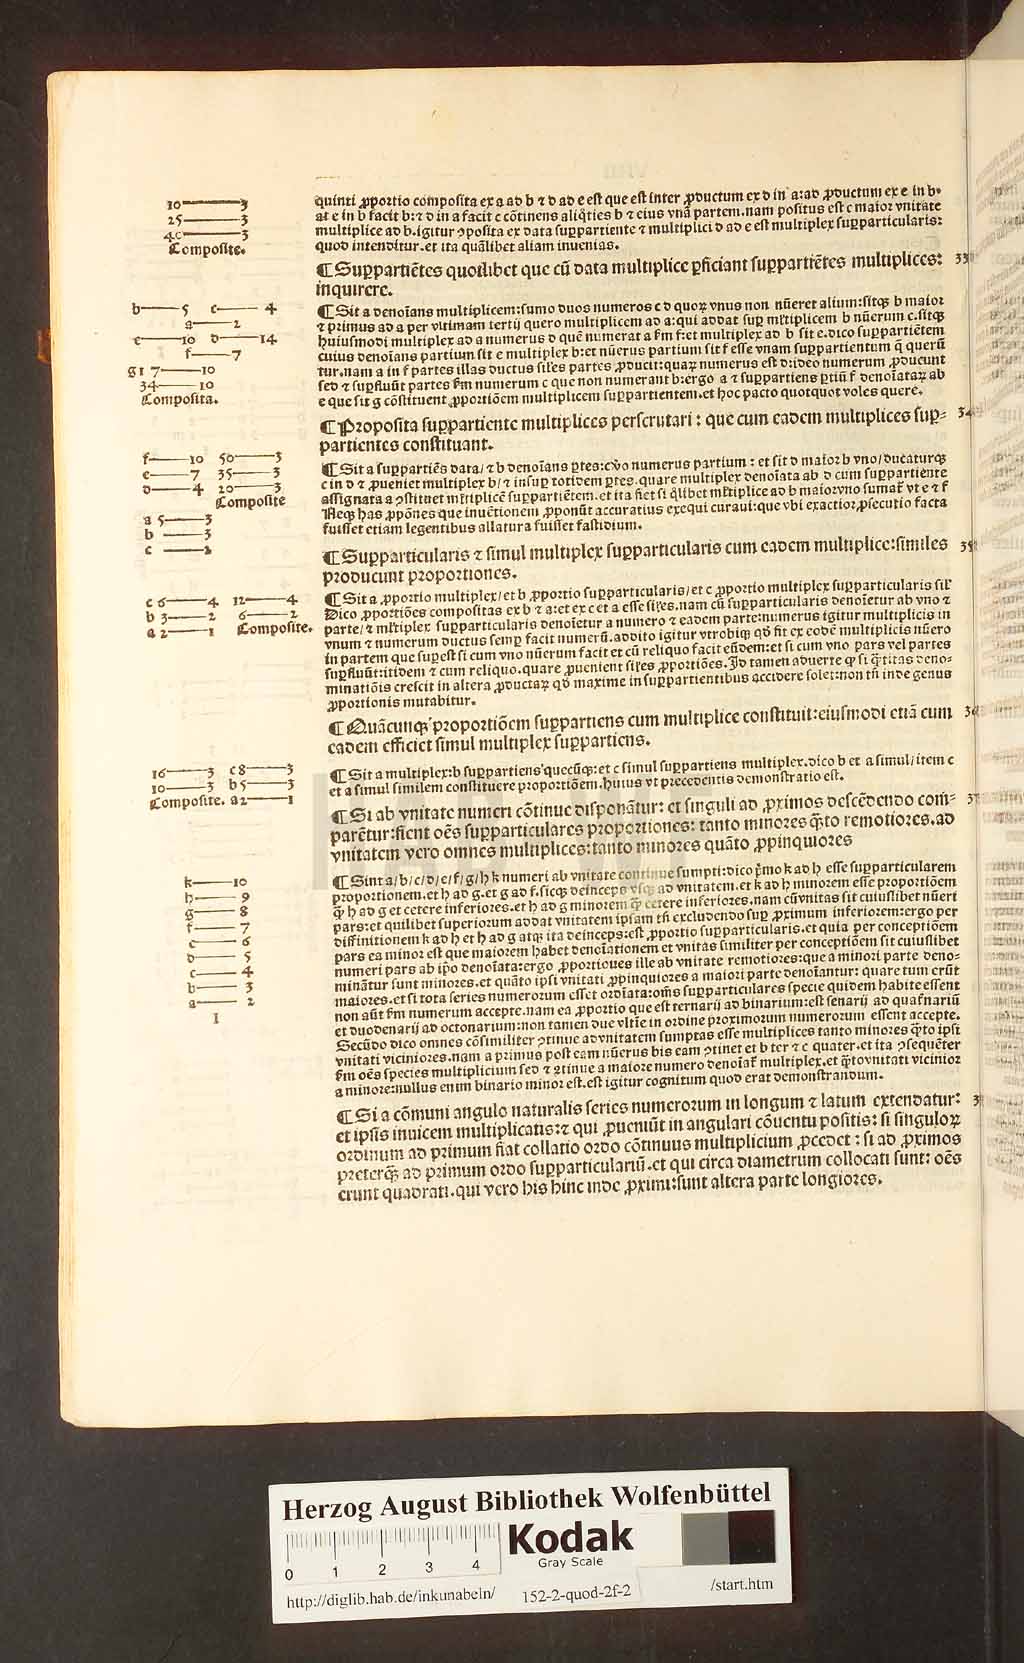 10——3
25——3
40——3
Composite.
quinti ꝓportio composita ex a ad b ⁊ d ad e est que est inter ꝓductum ex d in a: ad ꝓductum ex e in b.
at e in b facit b: ⁊ d in a facit c cõtinens aliq̃ties b ⁊ eius vnã partem. nam positus est c maior vnitate
multiplice ad b. igitur ꝯposita ex data suꝑpartiente ⁊ multiplici d ad e est multiplex suꝑparticularis:
quod intenditur. et ita quãlibet aliam inuenias.
¶ Suꝑpartiẽtes quotlibet que cũ data multiplice ꝑficiant suꝑpartiẽtes multiplices: 33
inquirere.
b——5 c——4
a——2
e——10 d——14
f——7
g 17——10
34——10
Composita.
¶ Sit a denoĩans multiplicem: sumo duos numeros c d quoꝝ vnus non nũeret alium: sitqꝫ b maior
⁊ primus ad a per vltimam tertij quero multiplicem ad a: qui addat suꝑ mĩtiplicem b nũerum c. sitqꝫ
huiusmodi multiplex ad a numerus d quẽ numerat a f̃m f: et multiplex ad b sit e. dico suꝑpartiẽtem
cuius denoĩans partium sit e multiplex b: et nũerus partium sit f esse vnam suꝑpartientum q̃ querũ
tur. nam a in f partes illas ductus sil̃es partes ꝓducit: quaꝝ numerus est d: ideo numerum ꝓducunt
sed ⁊ suꝑfluũt partes f̃m numerum c que non numerant b: ergo a ⁊ suꝑpartiens ꝑtiũ f denoĩataꝝ ab
e que sit g cõstituent ꝓportiõem multiplicem suꝑpartientem. et hoc pacto quotquot voles quere.
¶ Proposita suꝑpartiente multiplices perscrutari: que cum eadem multiplices suꝑ= 34
partientes constituant.
f——10 50——3
e——7 35——3
d——4 20——3
Composite
a 5——3
b ——3
c ——2
¶ Sit a suꝑpartiẽs data/ ⁊ b denoĩans ꝑtes: c vo numerus partium: et sit d maior b vno/ ducaturqꝫ
c in d ⁊ ꝓueniet multiplex b/ ⁊ insuꝑ totidem ꝑtes. quare multiplex denoĩata ab d cum suꝑpartiente
assignata a ꝯstituet mĩtiplicẽ suꝑpartiẽtem. et ita fiet si q̃libet mĩtiplice ad b maior vno sumat̃ vt e ⁊ f
Neqꝫ has ꝓpõnes que inuẽtionem ꝓponũt accuratius exequi curaui: que vbi exactior ꝓsecutio facta
fuisset etiam legentibus allatura fuisset fastidium.
¶ Suꝑparticularis ⁊ simul multiplex suꝑparticularis cum eadem multiplice: similes 35
producunt proportiones.
c 6——4 12——4
b 3——2 6——2
a 2——1 Composite.
¶ Sit a ꝓportio multiplex/ et b ꝓportio suꝑparticularis/ et c ꝓportio multiplex suꝑparticularis sil̃
Dico ꝓportiões compositas ex b ⁊ a: et ex c et a esse sil̃es. nam cũ suꝑparticularis denoĩetur ab vno ⁊
parte/ ⁊ mĩtiplex suꝑparticularis denoĩetur a numero ⁊ eadem parte: numerus igitur multiplicis in
vnum ⁊ numerum ductus semꝑ facit numerũ. addito igitur vtrobiqꝫ qd̃ fit ex eodẽ multiplicis nũero
in partem que suꝑest si cum vno nũerum facit et cũ reliquo facit eũdem: et si cum vno pars vel partes
suꝑfluũt: itidem ⁊ cum reliquo. quare ꝓuenient sil̃es ꝓportiões. Id tamen aduerte ꝙ si q̃titas deno=
minatiõis crescit in altera ꝓductaꝝ qd̃ maxime in suꝑpartientibus accidere solet: non tñ inde genus
ꝓportionis mutabitur.
¶ Quãcunqꝫ proportiõem suꝑpartiens cum multiplice constituit: eiusmodi etiã cum 36
eadem efficiet simul multiplex suꝑpartiens.
16——3 c 8——3
10——3 b 5——3
Composite. a 2——1
¶ Sit a multiplex: b suꝑpartiens quecũqꝫ: et c simul suꝑpartiens multiplex. dico b et a simul/ item c
et a simul similem constituere proportiõem. huius vt precedentis demonstratio est.
¶ Si ab vnitate numeri cõtinue disponãtur: et singuli ad ꝓximos descẽdendo com= 37
parẽtur: fient oẽs suꝑparticulares proportiones: tanto minores q̃to remotiores. ad
vnitatem vero omnes multiplices: tanto minores quãto ꝓpinquiores
k——10
h——9
g——8
f——7
e——6
d——5
c——4
b——3
a——2
1
¶ Sint a/ b/ c/ d/ e/ f/ g/ h/ k numeri ab vnitate continue sumpti: dico p̃mo k ad h esse suꝑparticularem
proportionem. et h ad g. et g ad f. sicqꝫ deinceps vsqꝫ ad vnitatem. et k ad h minorem esse proportiõem
q̃ h ad g et cetere inferiores. et h ad g minorem q̃ cetere inferiores. nam cũ vnitas sit cuiuslibet nũeri
pars: et quilibet superiorum addat vnitatem ipsam tñ excludendo suꝑ ꝓximum inferiorem: ergo per
diffinitionem k ad h et h ad g atqꝫ ita deinceps: est ꝓportio suꝑparticularis. et quia per conceptiõem
pars ea minor est que maiorem habet denoĩationem et vnitas similiter per conceptiõem sit cuiuslibet
numeri pars ab ip̃o denoĩata: ergo ꝓportiones ille ab vnitate remotiores: que a minori parte deno=
minãtur sunt minores. et quãto ipsi vnitati ꝓpinquiores a maiori parte denoĩantur: quare tum erũt
maiores. et si tota series numerorum esset ordĩata: om̃s suꝑparticulares specie quidem habite essent
non aũt f̃m numerum accepte. nam ea ꝓportio que est ternarij ad binarium: est senarij ad quat̃nariũ
et duodenarij ad octonarium: non tamen due vltĩe in ordine proximorum numerorum essent accepte.
Secũdo dico omnes cõsimiliter ꝯtinue ad vnitatem sumptas esse multiplices tanto minores q̃to ipsi
vnitati viciniores. nam a primus post eam nũerus bis eam ꝯtinet et b ter ⁊ c quater. et ita ꝯsequẽter
f̃m oẽs species multiplicium sed ⁊ ꝯtinue a maiore numero denoĩat̃ multiplex. et q̃to vnitati vicinior
a minore: nullus enim binario minor est. est igitur cognitum quod erat demonstrandum.
¶ Si a cõmuni angulo naturalis series numerorum in longum ⁊ latum extendatur: 3
et ipsis inuicem multiplicatis: ⁊ qui ꝓueniũt in angulari cõuentu positis: si singuloꝝ
ordinum ad primum fiat collatio ordo cõtinuus multiplicium ꝓcedet: si ad ꝓximos
preterq̃ꝫ ad primum ordo suꝑparticulariũ. et qui circa diametrum collocati sunt: oẽs
erunt quadrati. qui vero his hinc inde ꝓximi: sunt altera parte longiores.
Herzog August Bibliothek Wolfenbüttel
Kodak
Gray Scale
0 1 2 3 4
http://diglib.hab.de/inkunabeln/ 152-2-quod-2f-2 /start.htm